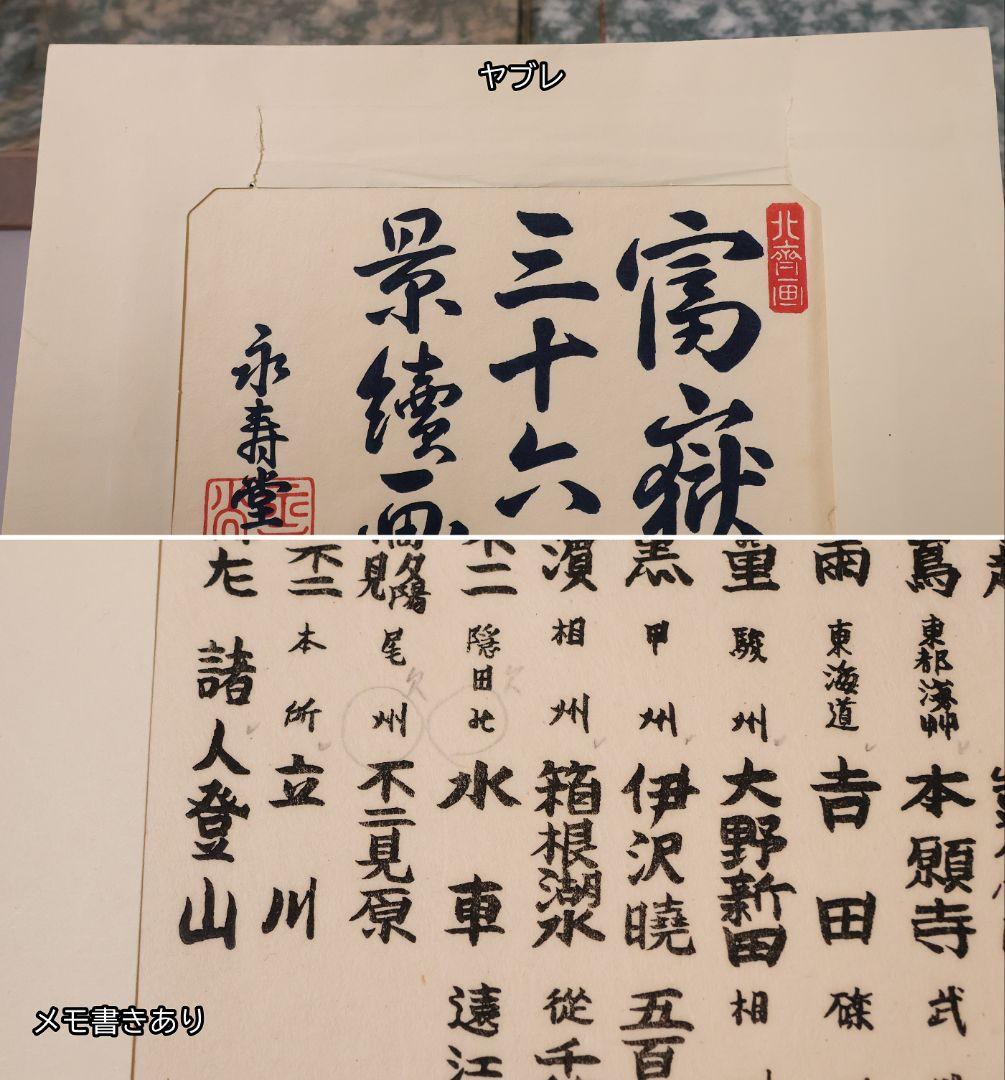 ヤブレ
北齋画
富嶽
三十六
景續画
永寿堂
鳥
東都浅艸
本願寺
武
雨
東海道
吉田
礫
重
駿州
大野新田
相
黒
甲州
伊沢暁
五百
濱
相州
箱根湖水
從千
不二
隠田
水車
遠江
見
尾州
不二見原
欠
欠
不二
本所
立川
諸人登山
メモ書きあり